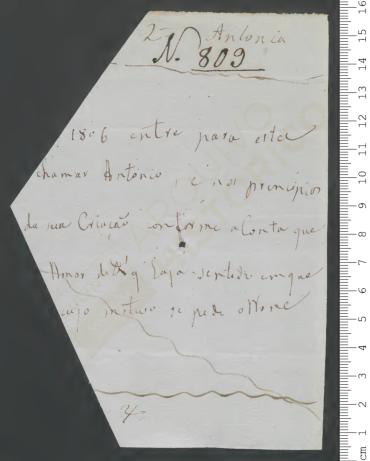 2 Antonia
N. 809
1806 entre para esta
chamar Antonio, e nos principios
da sua Criação conforme a Conta que
Amor de q faja sentido em que
cujo motivo se pede o Nome
ARQUIVO
HISTÓRICO
cm 1 2 3 4 5 6 7 8 9 10 11 12 13 14 15 16